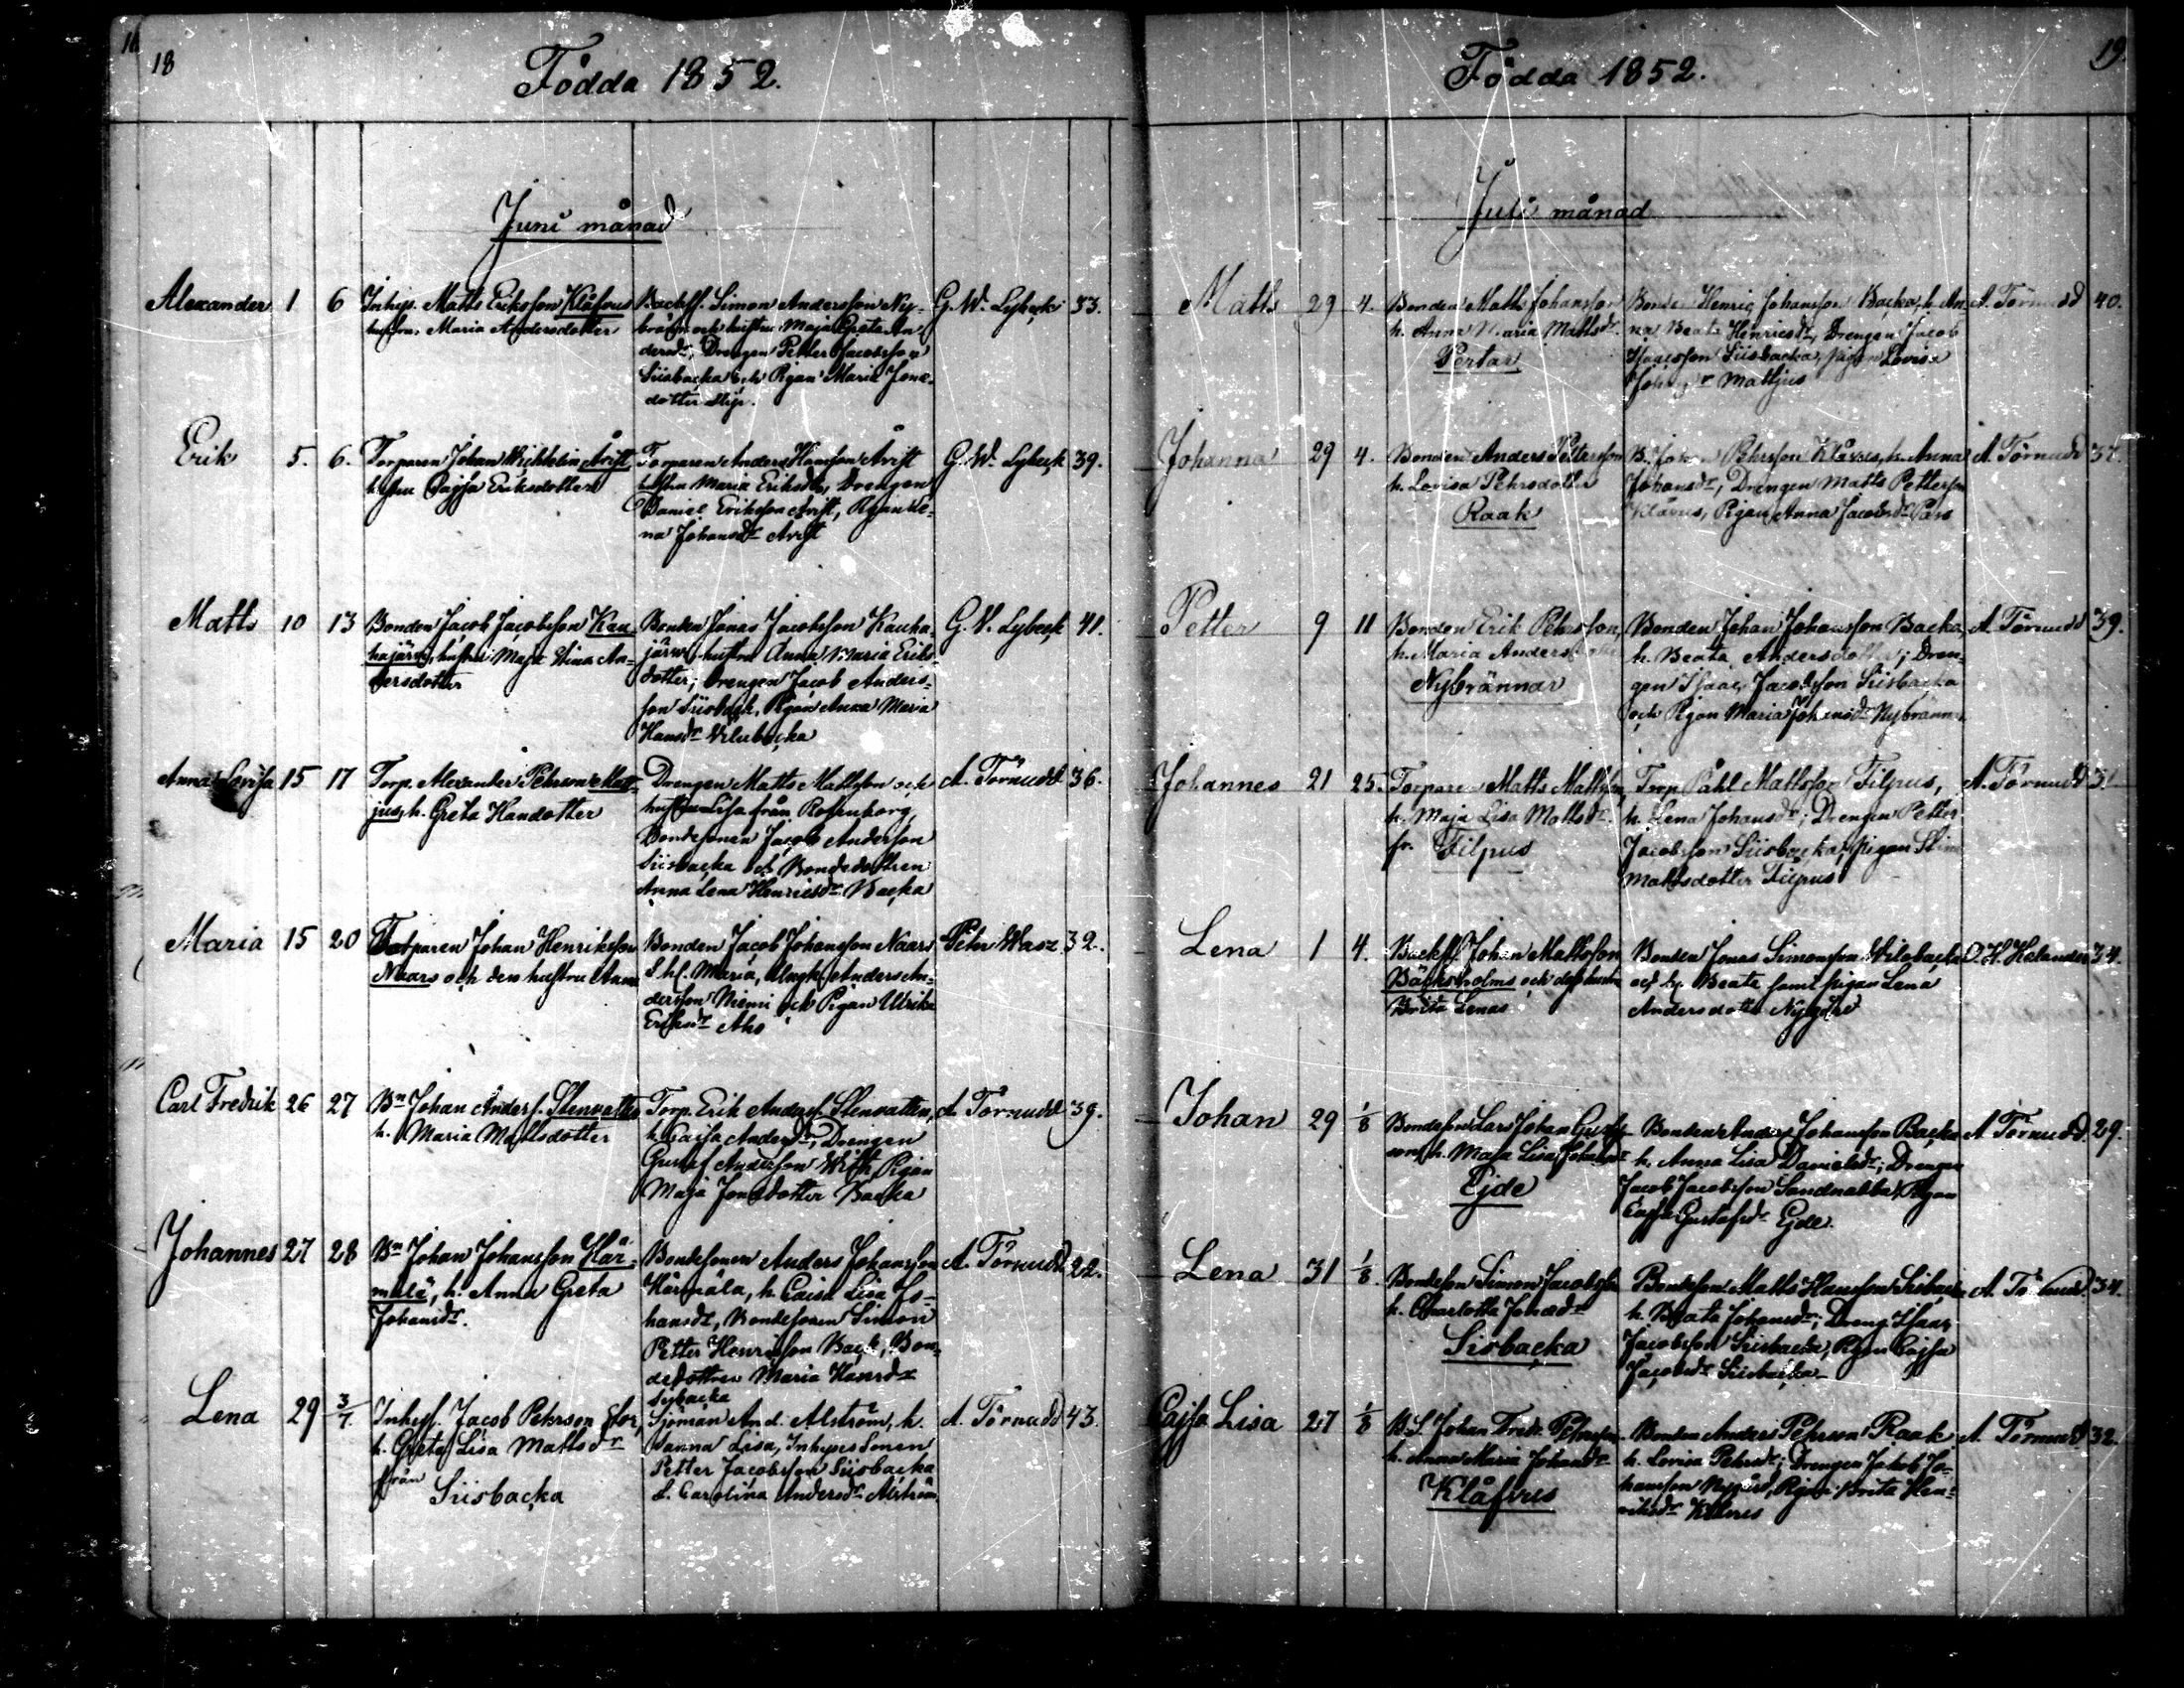 18
Födda 1852.
Juni månad
Alexander 1 6 Inhys. Matts Eriksson Klåfvus
hustrun Maria Andersdotter
Backst. Simon Andersson Ny-
bränn och hustrun Maja Greta An
dersdr, Drengen Petter Jacobsson
Siisbacka och Pigan Maria Jons-
dotter
G. W. Lybeck 33.
Erik 5. 6. Torparen Johan Wichtelin Åvist
hustru Cajsa Eriksdotter
Torparen Anders Hansson Åvist
hustru Maria Eriksdr, Drengen
Daniel Eriksson Åvist, Pigan Le-
na Johansdr Åvist
G. W. Lybeck 39.
Matts 10 13 Bonden Jacob Jacobsson Kau
hajärvi, hustru Maja Stina An-
dersdotter
Bonden Jonas Jacobsson Kauha-
järvi hustru Anna Maria Eriks-
dotter; Drengen Jacob Anders-
son Siisback, Pigan Anna Maria
Hansdr Wilobacka
G. W. Lybeck 41.
Anna Lovisa 15 17 Torp. Alexander Pehrson Matt-
jus, h. Greta Hansdotter
Drengen Matts Mattsson och
hustrun Lisa från Rosenborg,
Bondesonen Jacob Andersson
Siisbacka och Bondedottren
Anna Lena Henricsdr Backa
A. Törnudd 36.
Maria 15 20 Torparen Johan Henriksson
Naars och dess hustru Anna
Bonden Jacob Johansson Naars
& h. Maria, Ungk. Anders An-
dersson Niemi och Pigan Ulrika
Eriksdr Aho
Petr Wasz 32.
Carl Fredrik 26 27 Bn Johan Anders. Stenvatten
h. Maria Mattsdotter
Torp. Erik Anderss. Stenvatten,
h. Caisa Andersdr; Drengen
Gustaf Andersson With, Pigan
Maja Jonsdotter Backa
A. Törnudd 39.
Johannes 27 28 Bn Johan Johansson Här-
mälä, h. Anna Greta
Johansdr.
Bondesonen Anders Johansson
Härmälä, h. Caisa Lisa Jo-
hansdr, Bondesonen Simon
Petter Henricsson Back, Bon-
dedottren Maria Hansdr
Sysbacka
A. Törnudd 22.
Lena 29 3/7. Inhys. Jacob Pehrson Stor,
h. Greta Lisa Mattsdr
från
Siisbacka
Sjöman And. Alström, h.
Sanna Lisa, Inhyses Sonen
Petter Jacobsson Siisbacka
& Carolina Andersdr Alström
A. Törnudd 43.
19.
Födda 1852.
Juli månad
Matts 29 4. Bonden Matts Johansson
h. Anna Maria Mattsdr
Pertar
Bonden Henric Johansson Backa, h. An-
na Beata Henricsdr, Drengen Jacob
Isacsson Siisbacka, pigan Lovisa
Mattjus
A. Törnudd 40.
Johanna 29 4. Bonden Anders Pettersson
h. Lovisa Pehrsdotter
Raak
B. Johan Pehrsson Klåvus, h. Anna
Johansdr, Drengen Matts Pettersson
Klåvus, Pigan Anna Jacobsdr
A. Törnudd 37.
Petter 9 11 Bonden Erik Pehrsson,
h. Maria Andersdotter
Nybrännar
Bonden Johan Johansson Backa,
h. Beata Andersdotter; Dren-
gen Isaac Jacobsson Siisbacka
och Pigan Maria Johansdr Nybränn
A. Törnudd 39.
Johannes 21 25. Torparen Matts Mattsson,
h. Maja Lisa Mattsdr.
fr. Filpus
Torp Påhl Mattsson Filpus,
h. Lena Johansdr; Drengen Petter
Jacobsson Siisbacka, pigan Stina
Mattsdotter Filpus
A. Törnudd 31
Lena 1 4. Backst. Johan Mattsson
Bäcksholms och dess hustru
Brita Lenas
Bonden Jonas Simonsson Wilobacka
och h. Beate samt pigan Lena
Andersdotter Nygård
O. H. Helander 34.
Johan 29 1/8 Bondeson Lars Johan Gustafs-
son, h. Maja Lisa Johansdr
Ejde
Bonden Anders Johansson Backa
h. Anna Lisa Danielsdr; Drengen
Jacob Jacobsson Sandnabba, Pigan
Cajsa Gustafsdr Ejde.
A. Törnudd 29.
Lena 31 1/8. Bondeson Simon Jacobsson
h. Charlotta Jonasdr
Sisbacka
Bondeson Matts Hansson Sisbacka
h. Beata Johansdr; Dreng Isaac
Jacobsson Siisbacka, Pigan Cajsa
Jacobsdr Siisbacka
A. Törnudd. 34.
Cajsa Lisa 27 1/8 B.S. Johan Fredr. Pehrsson
h. Anna Maria Johansdr
Klåfvus
Bonden Anders Pehrson Raak
h. Lovisa Pehrsdr; Drengen Jakob Jo-
hansson Nygård, Pigan Brita Hen-
riksdr Klåvus
A. Törnudd 32.